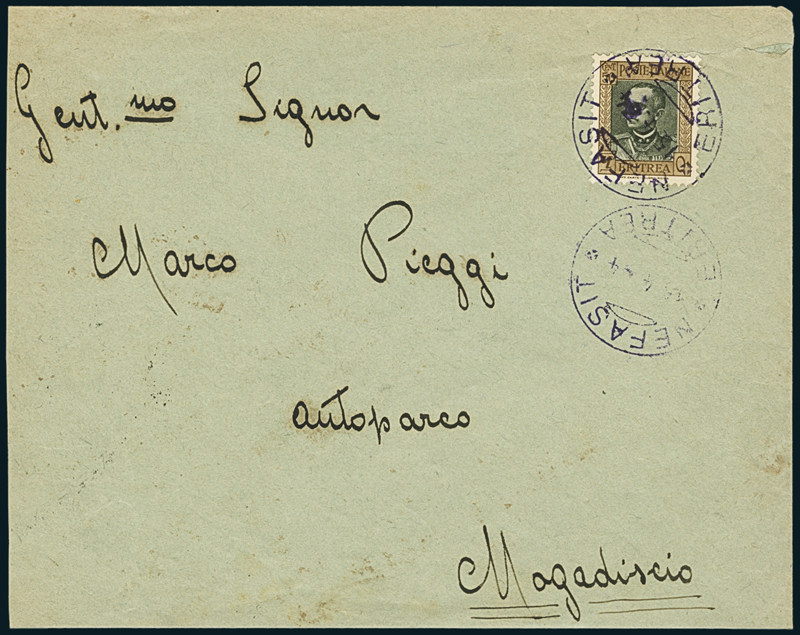 Gent.mo Signor
Marco Pieggi
autoparco
Mogadiscio
POSTE ITALIANE
CENT 50
ERITREA
NEFASIT * ERITREA
NEFASIT * ERITREA